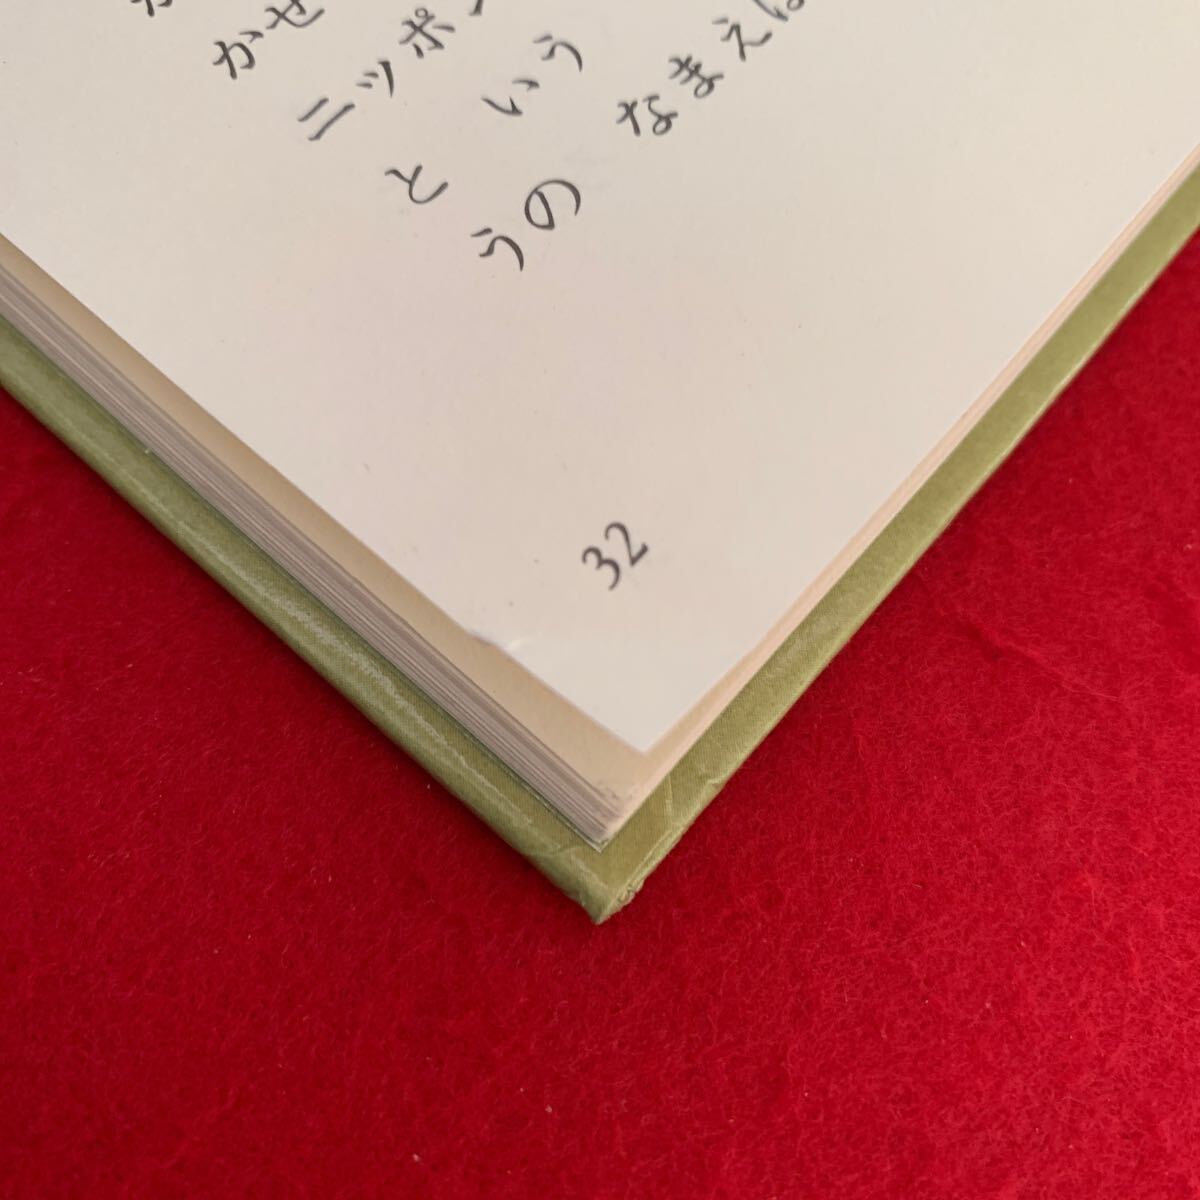 がせ
ニッポ
と いう
うの なまえは
32